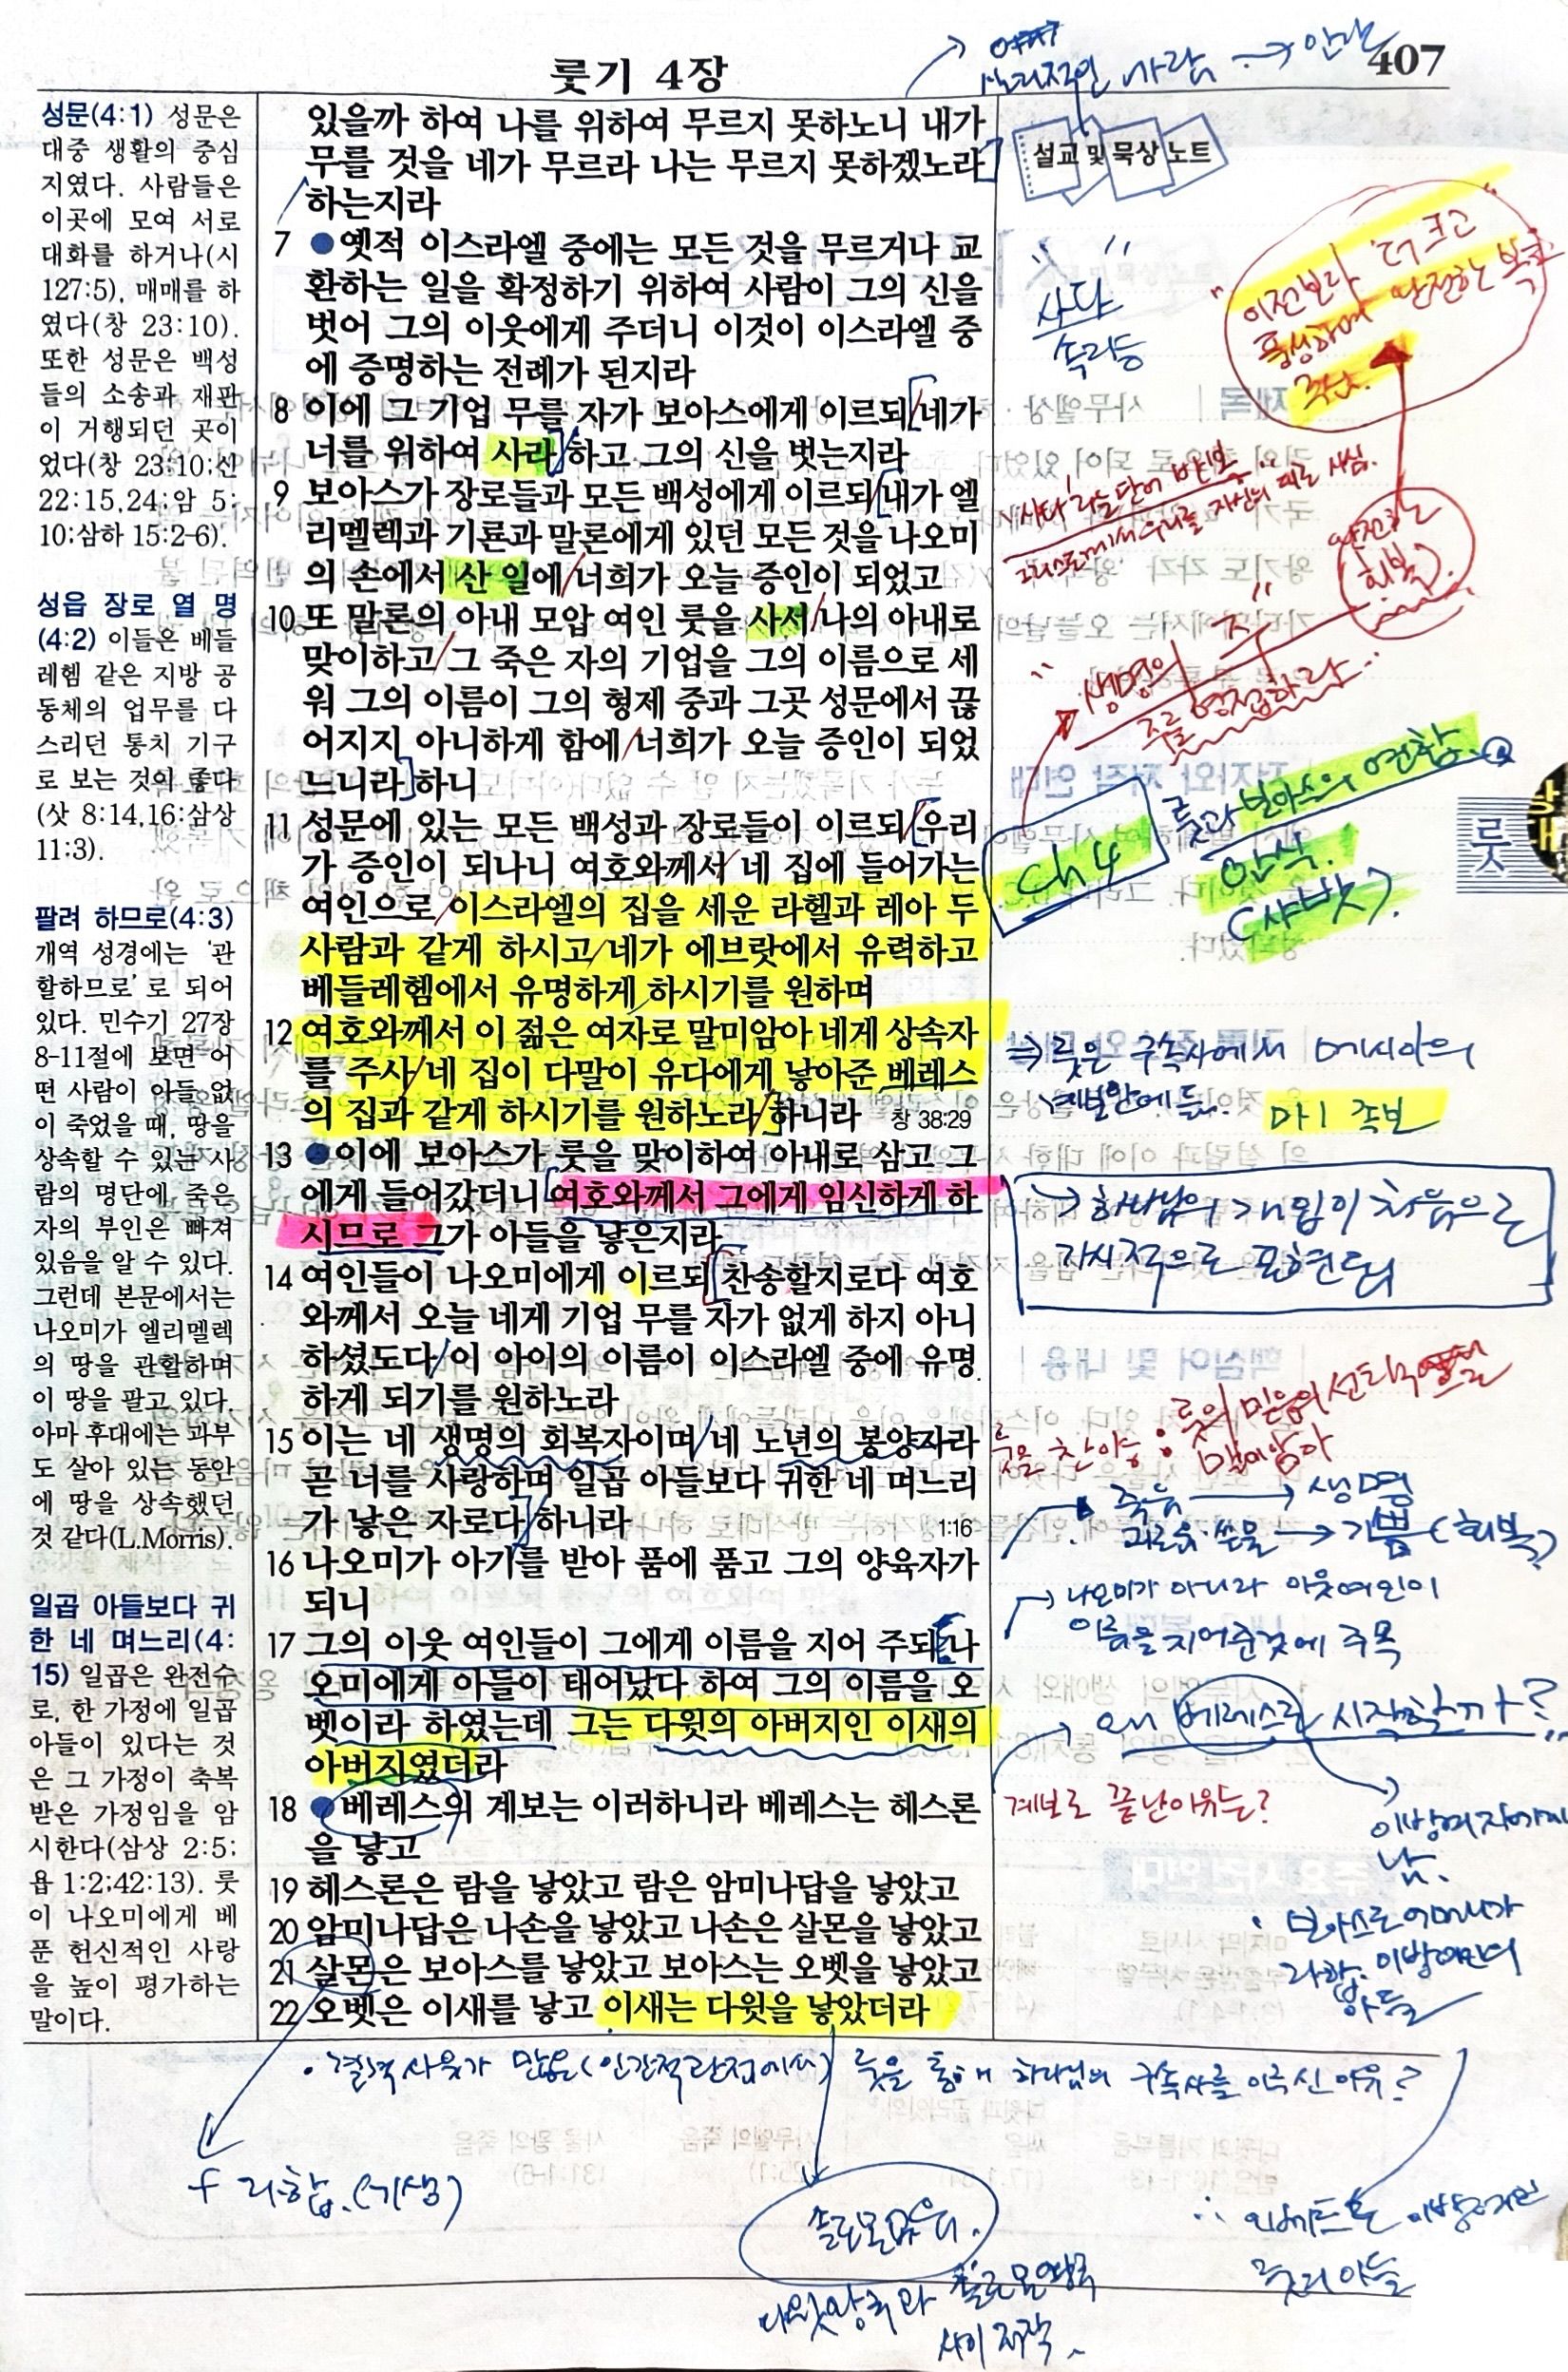 룻기 4장
407
성문(4:1) 성문은
대중 생활의 중심
지였다. 사람들은
이곳에 모여 서로
대화를 하거나(시
127:5), 매매를 하
였다(창 23:10).
또한 성문은 백성
들의 소송과 재판
이 거행되던 곳이
었다(창 23:10;신
22:15,24;암 5:
10;삼하 15:2-6).
성읍 장로 열 명
(4:2) 이들은 베들
레헴 같은 지방 공
동체의 업무를 다
스리던 통치 기구
로 보는 것이 좋다
(삿 8:14,16;삼상
11:3).
팔려 하므로(4:3)
개역 성경에는 '관
할하므로'로 되어
있다. 민수기 27장
8-11절에 보면 어
떤 사람이 아들 없
이 죽었을 때, 땅을
상속할 수 있는 사
람의 명단에 죽은
자의 부인은 빠져
있음을 알 수 있다.
그런데 본문에서는
나오미가 엘리멜렉
의 땅을 관활하며
이 땅을 팔고 있다.
아마 후대에는 과부
도 살아 있는 동안
에 땅을 상속했던
것 같다(L.Morris).
일곱 아들보다 귀
한 네 며느리(4:
15) 일곱은 완전수
로, 한 가정에 일곱
아들이 있다는 것
은 그 가정이 축복
받은 가정임을 암
시한다(삼상 2:5;
욥 1:2;42:13). 룻
이 나오미에게 베
푼 헌신적인 사랑
을 높이 평가하는
말이다.
있을까 하여 나를 위하여 무르지 못하노니 내가
무를 것을 네가 무르라 나는 무르지 못하겠노라
하는지라
7 ●옛적 이스라엘 중에는 모든 것을 무르거나 교
환하는 일을 확정하기 위하여 사람이 그의 신을
벗어 그의 이웃에게 주더니 이것이 이스라엘 중
에 증명하는 전례가 된지라
8 이에 그 기업 무를 자가 보아스에게 이르되 네가
너를 위하여 사라 하고 그의 신을 벗는지라
9 보아스가 장로들과 모든 백성에게 이르되 내가 엘
리멜렉과 기룐과 말론에게 있던 모든 것을 나오미
의 손에서 산 일에 너희가 오늘 증인이 되었고
10 또 말론의 아내 모압 여인 룻을 사서 나의 아내로
맞이하고 그 죽은 자의 기업을 그의 이름으로 세
워 그의 이름이 그의 형제 중과 그곳 성문에서 끊
어지지 아니하게 함에 너희가 오늘 증인이 되었
느니라 하니
11 성문에 있는 모든 백성과 장로들이 이르되 우리
가 증인이 되나니 여호와께서 네 집에 들어가는
여인으로 이스라엘의 집을 세운 라헬과 레아 두
사람과 같게 하시고 네가 에브랏에서 유력하고
베들레헴에서 유명하게 하시기를 원하며
12 여호와께서 이 젊은 여자로 말미암아 네게 상속자
를 주사 네 집이 다말이 유다에게 낳아준 베레스
의 집과 같게 하시기를 원하노라 하니라 창 38:29
13 ●이에 보아스가 룻을 맞이하여 아내로 삼고 그
에게 들어갔더니 여호와께서 그에게 임신하게 하
시므로 그가 아들을 낳은지라
14 여인들이 나오미에게 이르되 찬송할지로다 여호
와께서 오늘 네게 기업 무를 자가 없게 하지 아니
하셨도다 이 아이의 이름이 이스라엘 중에 유명
하게 되기를 원하노라
15 이는 네 생명의 회복자이며 네 노년의 봉양자라
곧 너를 사랑하며 일곱 아들보다 귀한 네 며느리
가 낳은 자로다 하니라 1:16
16 나오미가 아기를 받아 품에 품고 그의 양육자가
되니
17 그의 이웃 여인들이 그에게 이름을 지어 주되 나
오미에게 아들이 태어났다 하여 그의 이름을 오
벳이라 하였는데 그는 다윗의 아버지인 이새의
아버지였더라
18 ●베레스의 계보는 이러하니라 베레스는 헤스론
을 낳고
19 헤스론은 람을 낳았고 람은 암미나답을 낳았고
20 암미나답은 나손을 낳았고 나손은 살몬을 낳았고
21 살몬은 보아스를 낳았고 보아스는 오벳을 낳았고
22 오벳은 이새를 낳고 이새는 다윗을 낳았더라
설교 및 묵상 노트
"사다"
"이전보다 더 크고
풍성하며 완전한 복
'사다'라는 단어 반복
완전한
회복
"생명의 주
주를 영접하라"
ch 4
룻과 보아스의 연합
안식.
(샤밧)
⇒ 룻은 구속사에서 메시아의
계보안에 듦. 마1 족보
→ 하나님의 개입이 처음으로
가시적으로 표현됨
룻을 찬양 : 룻의 믿음의 선택
말미암아
죽음 → 생명
괴로움 쓴물 → 기쁨 (회복)
→ 나오미가 아니라 이웃여인이
이름을 지어준것에 주목
→ 왜 베레스로 시작할까?
계보로 끝난이유는?
이방여자에게
남.
보아스도 어머니가
라합. 이방여인의
아들
룻
· 결격사유가 많은 (인간적관점에서) 룻을 통해 하나님의 구속사를 이루신 이유?
라합.(기생)
솔로몬없음.
다윗왕국과 솔로몬왕국
사이 저작.
∴ 오벳도 이방여인
룻의 아들